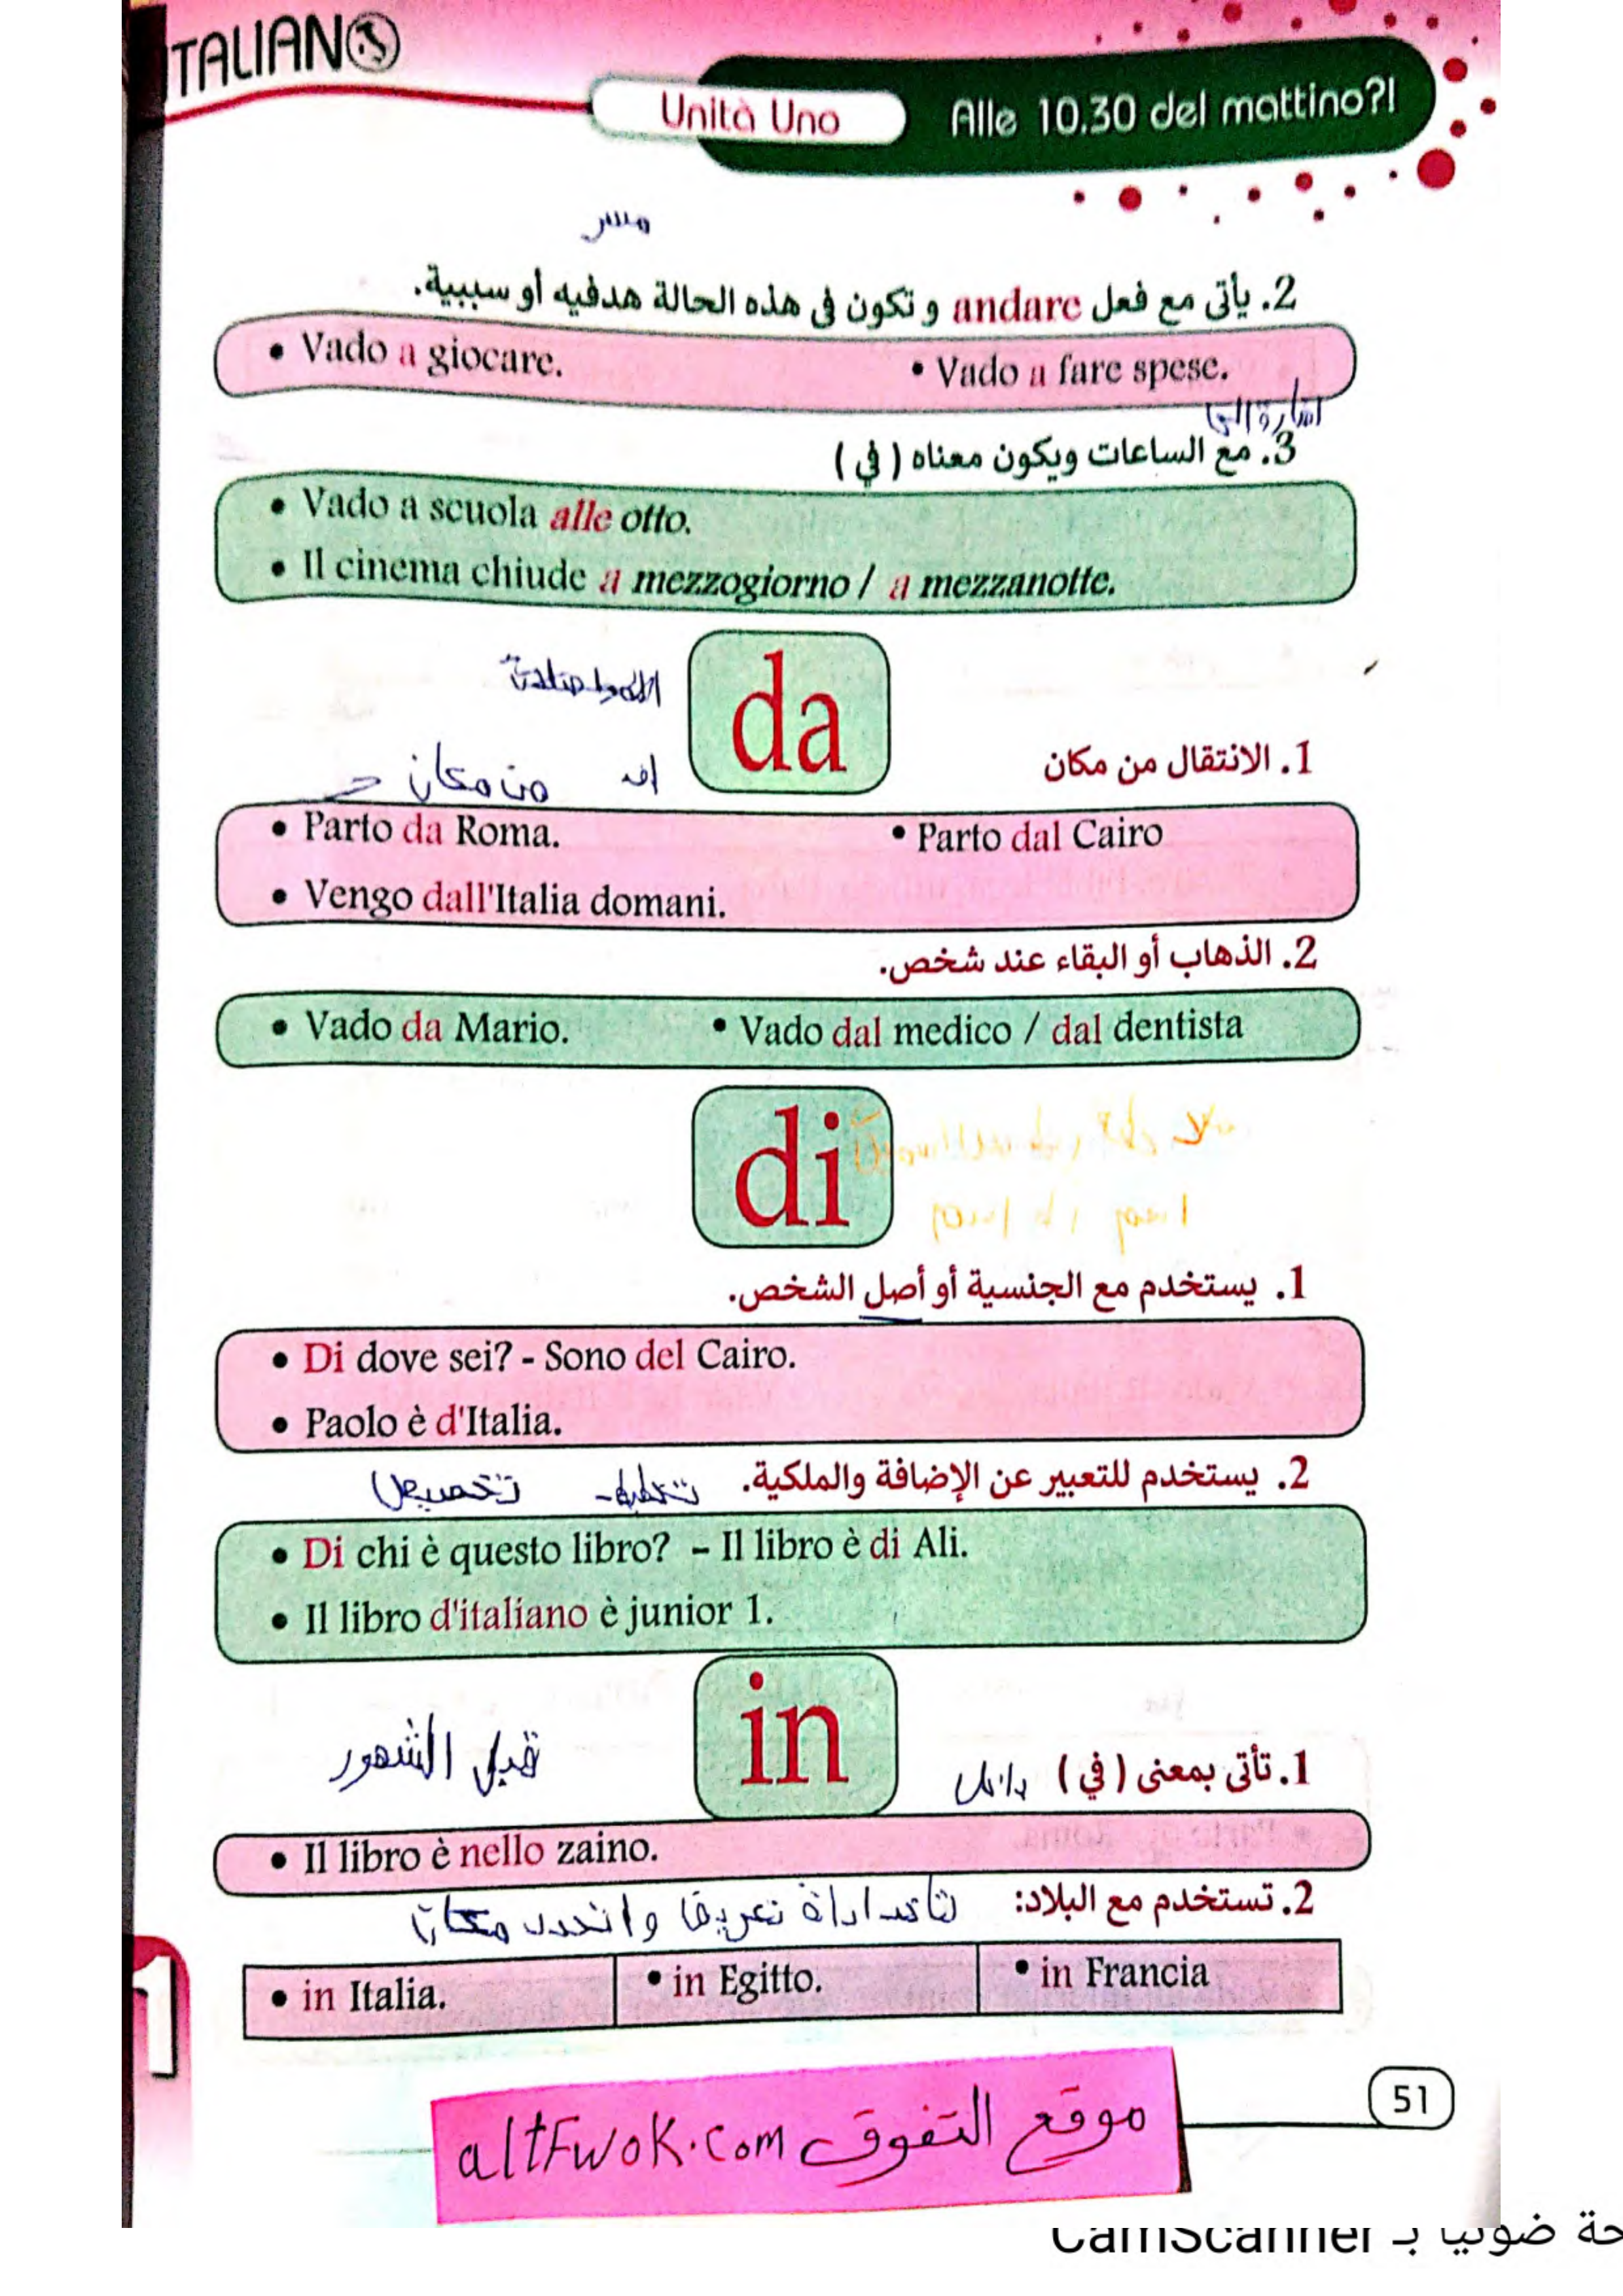 ITALIANO
Unità Uno
Alle 10.30 del mattino?!
2. يأتى مع فعل andare و تكون فى هذه الحالة هدفيه أو سببية.
• Vado a giocare. • Vado a fare spese.
3. مع الساعات ويكون معناه ( في )
• Vado a scuola alle otto.
• Il cinema chiude a mezzogiorno / a mezzanotte.
da
من مكان
1. الانتقال من مكان
• Parto da Roma. • Parto dal Cairo
• Vengo dall'Italia domani.
2. الذهاب أو البقاء عند شخص.
• Vado da Mario. • Vado dal medico / dal dentista
di
1. يستخدم مع الجنسية أو أصل الشخص.
• Di dove sei? - Sono del Cairo.
• Paolo è d'Italia.
2. يستخدم للتعبير عن الإضافة والملكية.
تخصيص
• Di chi è questo libro? – Il libro è di Ali.
• Il libro d'italiano è junior 1.
in
قبل الشهور
1. تأتى بمعنى ( في ) داخل
• Il libro è nello zaino.
2. تستخدم مع البلاد:
• in Italia. • in Egitto. • in Francia
1
51
موقع التفوق altFwok.com
CamScanner